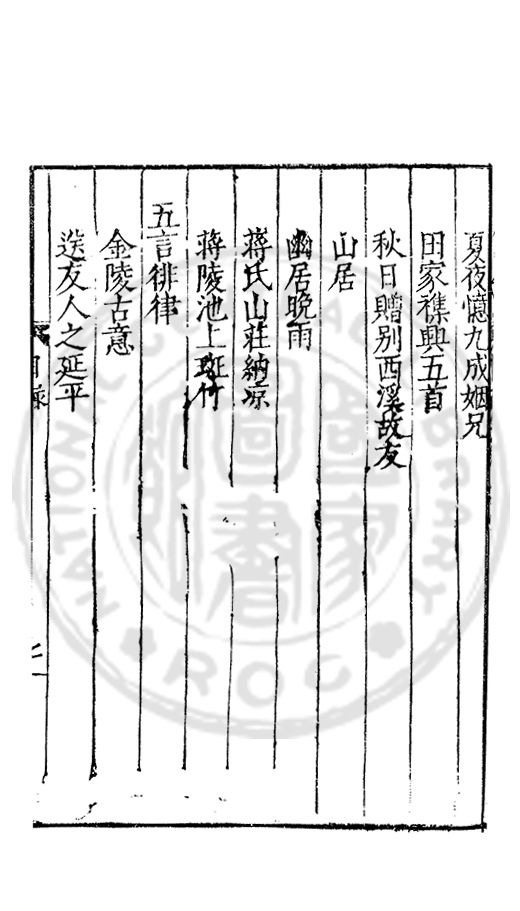 夏夜憶九成姻兄
田家襍興五首
秋日贈别西溪故友
山居
幽居晩雨
蒋氏山莊納凉
蒋陵池上斑竹
五言徘律
金陵古意
送友人之延平
目錄